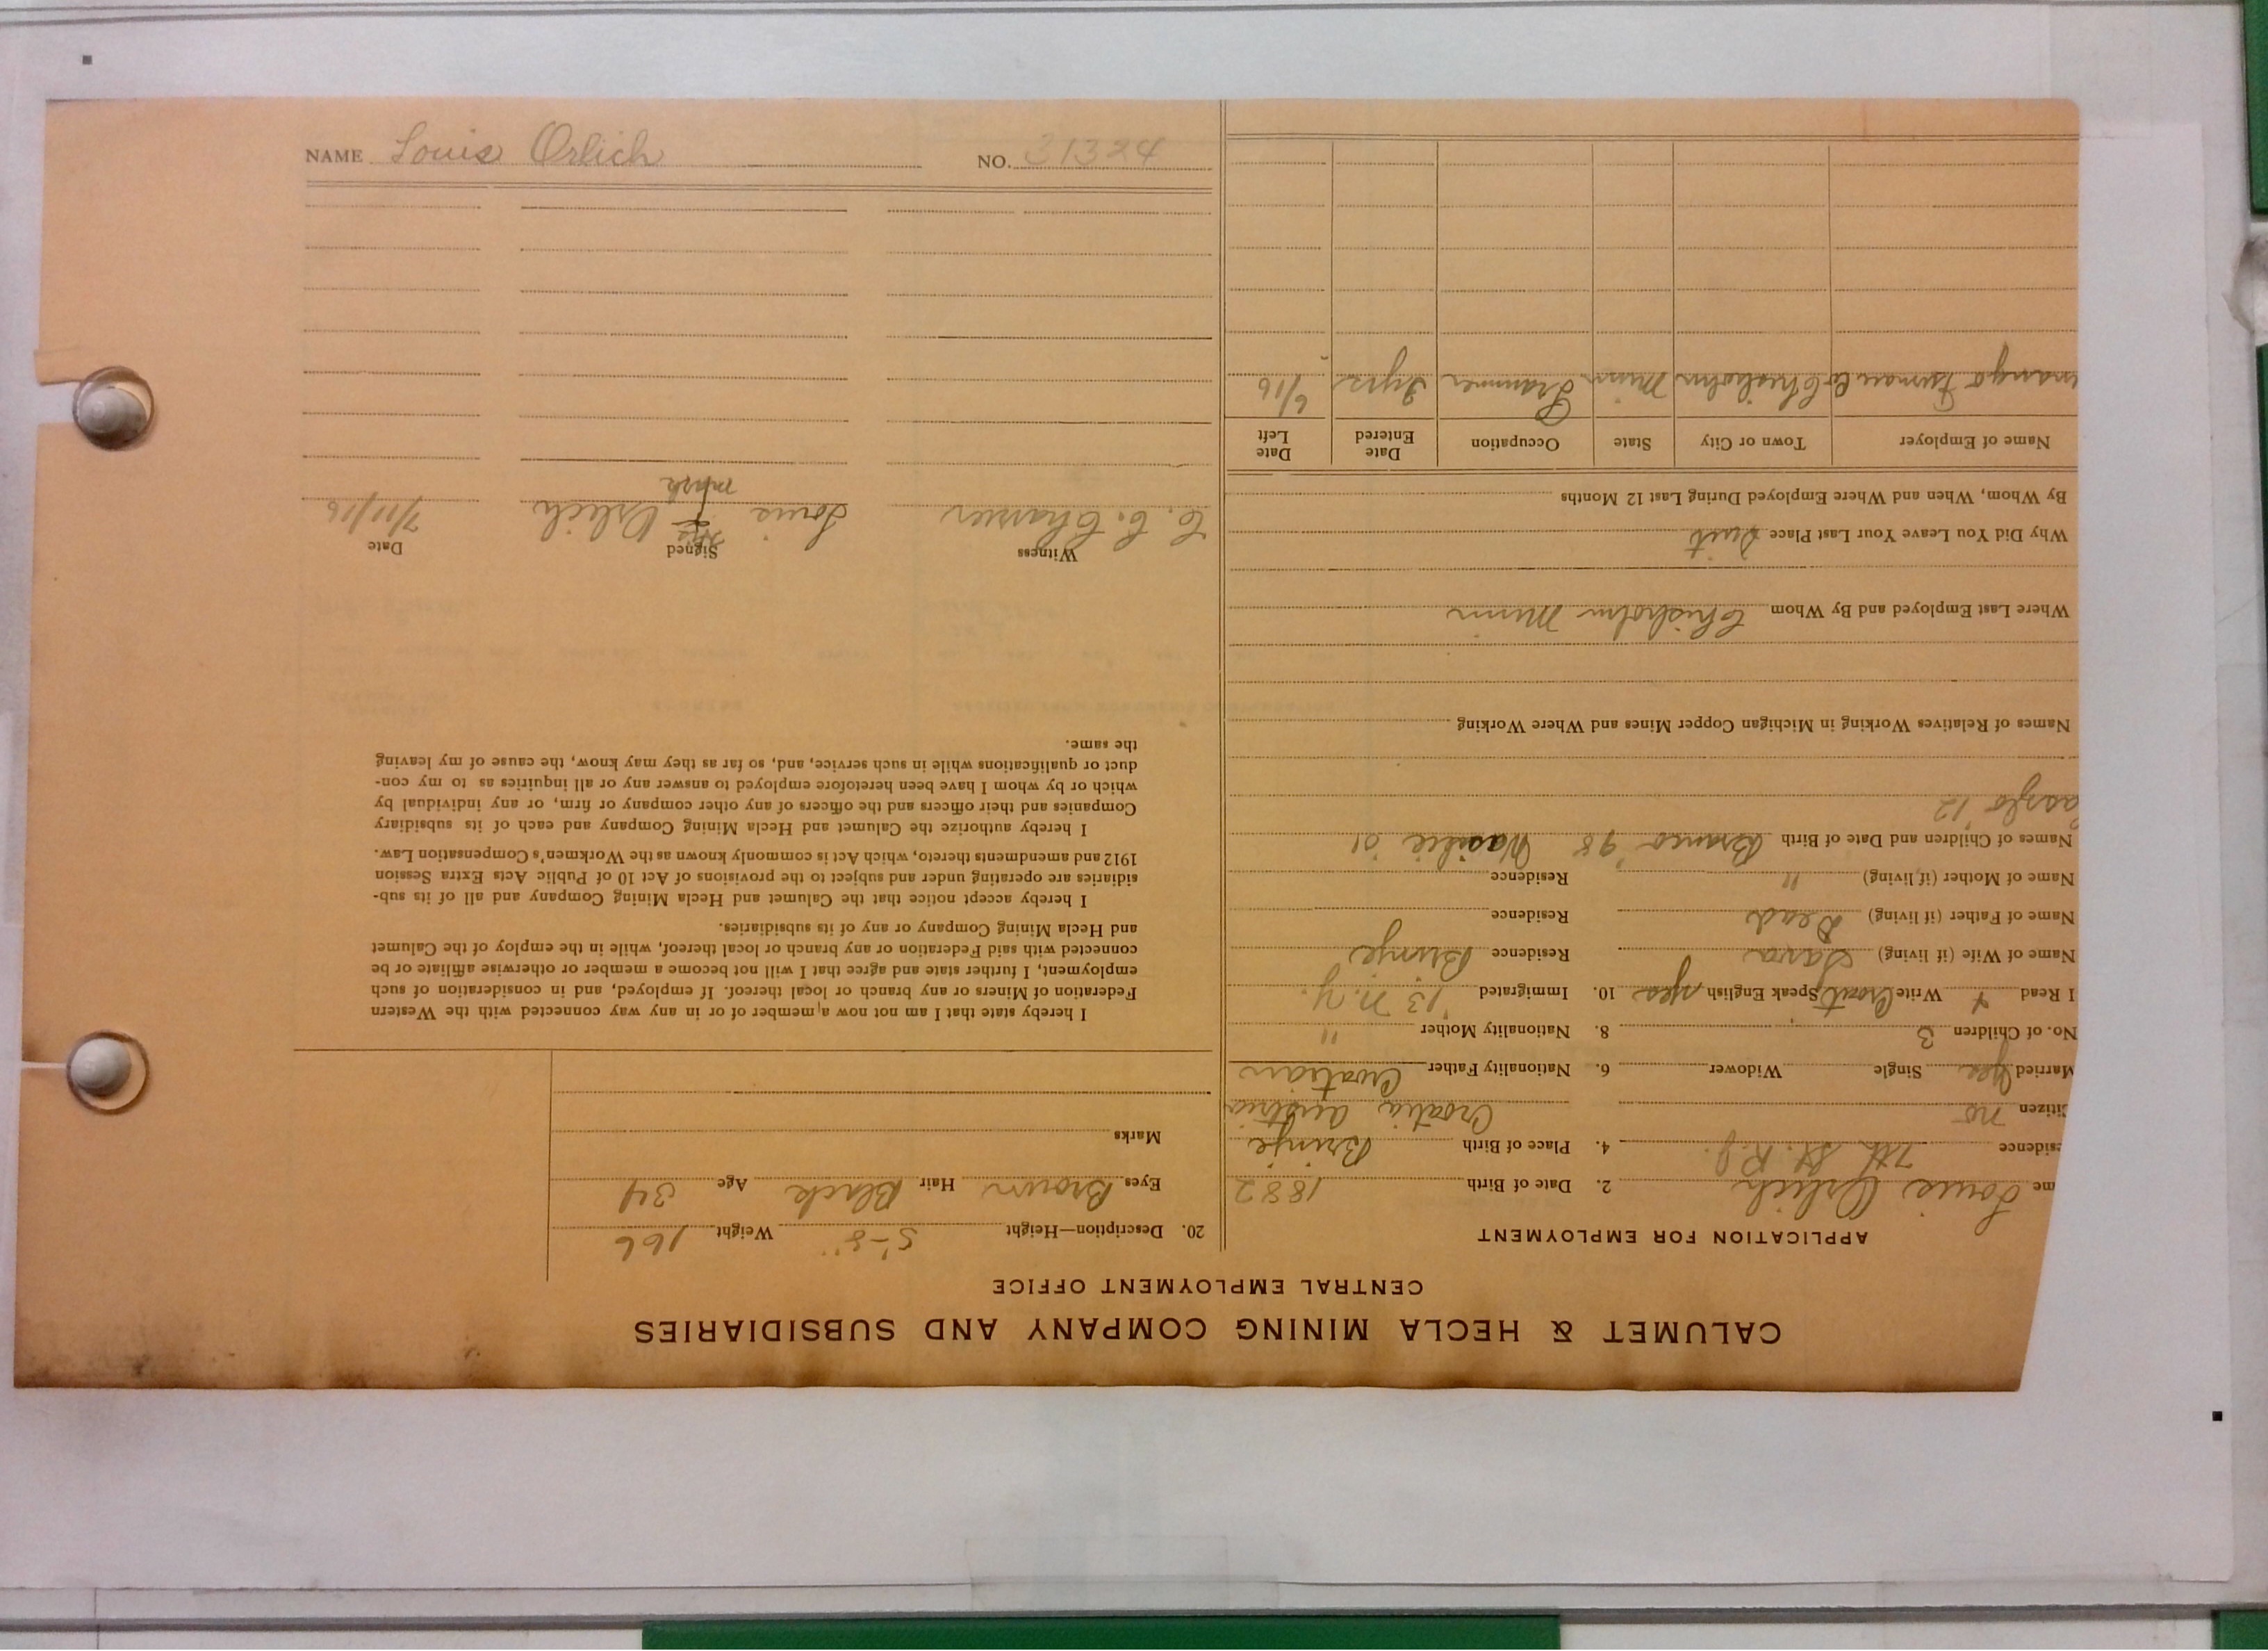 CALUMET & HECLA MINING COMPANY AND SUBSIDIARIES
CENTRAL EMPLOYMENT OFFICE
APPLICATION FOR EMPLOYMENT
me Louis Orlich 2. Date of Birth 1882
esidence 7th St. R.J. 4. Place of Birth Brinje
Citizen no Croatia Austria
Married Yes Single Widower 6. Nationality Father Croatian
No. of Children 3 8. Nationality Mother "
I Read + Write Croat Speak English yes 10. Immigrated '13 N.Y.
Name of Wife (if living) Sava Residence Brinje
Name of Father (if living) Dead Residence
Name of Mother (if living) " Residence
Names of Children and Date of Birth Branco '98 Wasilie '01
'12
Names of Relatives Working in Michigan Copper Mines and Where Working
Where Last Employed and By Whom Chisholm Minn
Why Did You Leave Your Last Place Quit
By Whom, When and Where Employed During Last 12 Months
Name of Employer Town or City State Occupation Date Entered Date Left
Chisholm Minn Trammer 2yrs 6/16
20. Description—Height 5'-8" Weight 166
Eyes Brown Hair Black Age 34
Marks
I hereby state that I am not now a member of or in any way connected with the Western
Federation of Miners or any branch or local thereof. If employed, and in consideration of such
employment, I further state and agree that I will not become a member or otherwise affiliate or be
connected with said Federation or any branch or local thereof, while in the employ of the Calumet
and Hecla Mining Company or any of its subsidiaries.
I hereby accept notice that the Calumet and Hecla Mining Company and all of its sub-
sidiaries are operating under and subject to the provisions of Act 10 of Public Acts Extra Session
1912 and amendments thereto, which Act is commonly known as the Workmen's Compensation Law.
I hereby authorize the Calumet and Hecla Mining Company and each of its subsidiary
Companies and their officers and the officers of any other company or firm, or any individual by
which or by whom I have been heretofore employed to answer any or all inquiries as to my con-
duct or qualifications while in such service, and, so far as they may know, the cause of my leaving
the same.
Witness Signed Date
his
Louis + Orlich 7/11/16
mark
NAME Louis Orlich NO. 31324